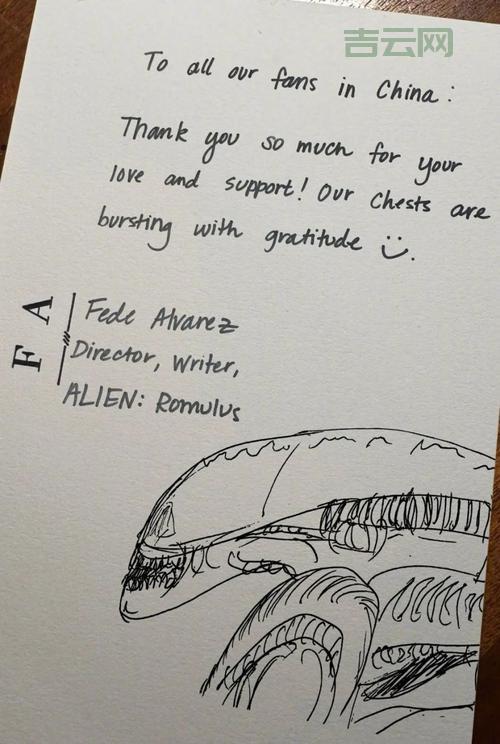 吉云网
To all our fans in China:
Thank you so much for your
love and support! Our Chests are
bursting with gratitude
F A
Fede Alvarez
Director, Writer,
ALIEN: Romulus